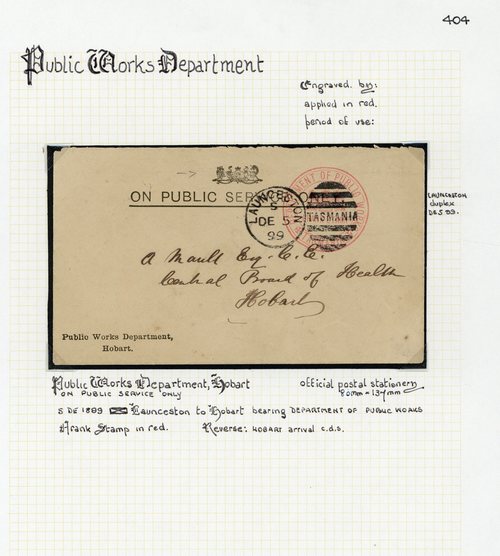 404
Public Works Department
Engraved by:
applied in red.
period of use:
ON PUBLIC SERVICE ONLY.
DEPARTMENT OF PUBLIC WORKS
LAUNCESTON
5
DE 5
99
TASMANIA
LAUNCESTON
duplex
DE 5 99.
A Mault Esq. C.E.
Central Board of Health
Hobart
Public Works Department,
Hobart.
Public Works Department, Hobart
official postal stationery
ON PUBLIC SERVICE ONLY
80mm - 137mm
5 DE 1899 Launceston to Hobart bearing DEPARTMENT OF PUBLIC WORKS
Frank Stamp in red. Reverse: HOBART arrival c.d.s.